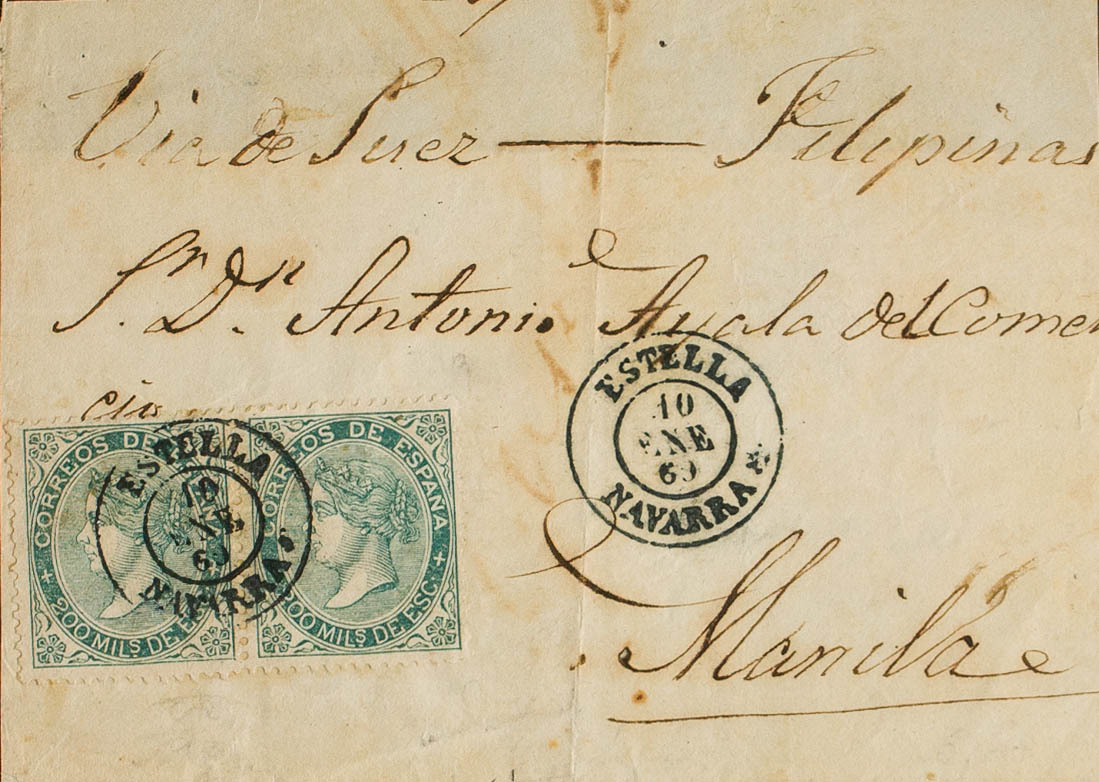 Via de Suez — Filipinas
Sr. Dn. Antonio Ayala del Comer
cio
CORREOS DE ESPAÑA
200 MILS DE ESC.
CORREOS DE ESPAÑA
200 MILS DE ESC.
ESTELLA
10
ENE
69
NAVARRA
ESTELLA
10
ENE
69
NAVARRA
Manila